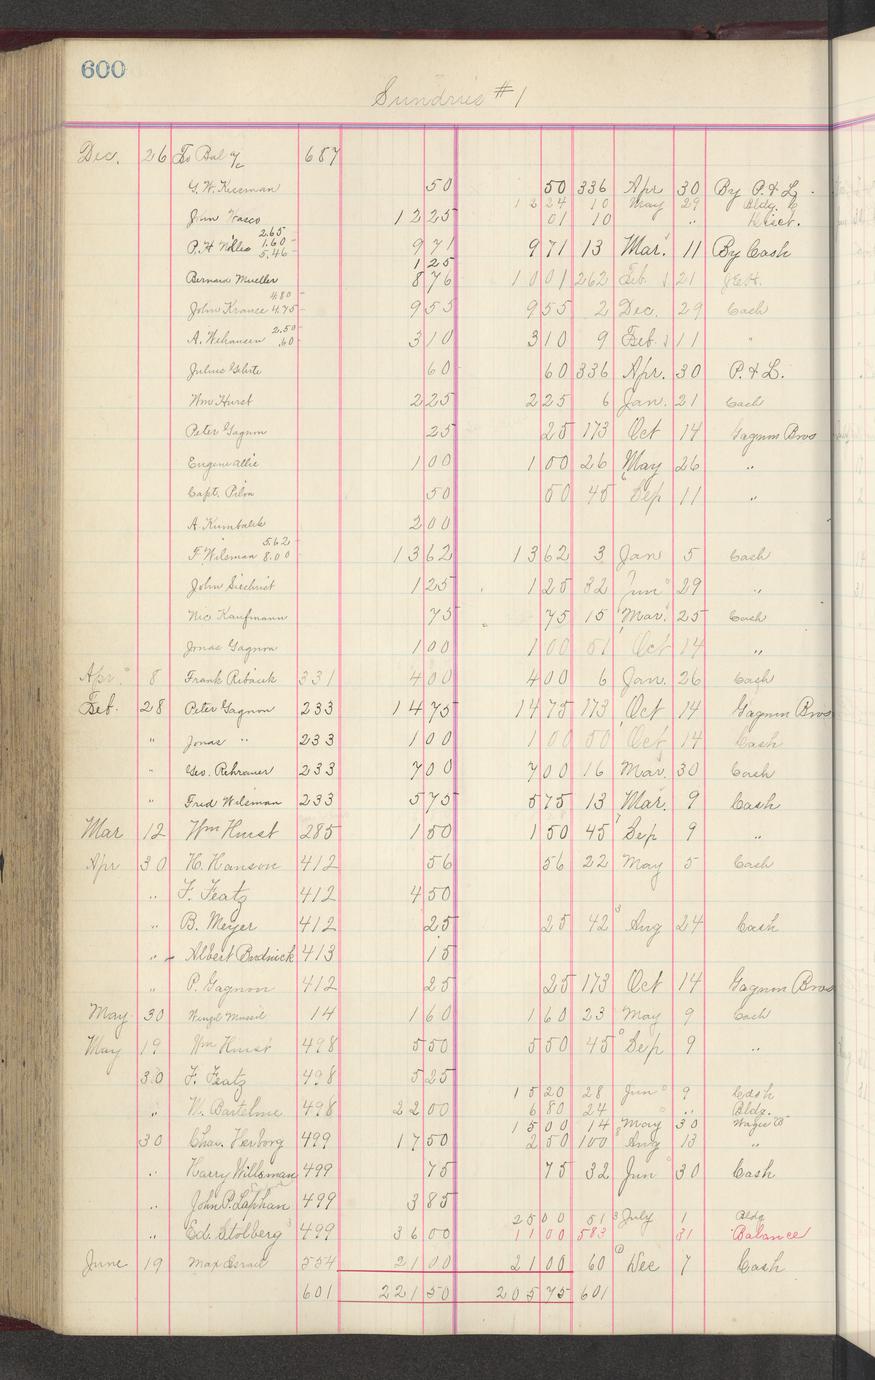 600
Sundries #1
Dec. 26 To Bal a/c 687
G. W. Kissman 50 50 336 Apr 30 By P. & L.
12 24 10 May 29 Bldg.
John Vasco 12 25 01 10 "
2.65
P. H. 1.60 9 71 9 71 13 Mar. 11 By Cash
5.46
1 25
Bernard Mueller 8 76 10 01 262 Feb 21
4.80
John Krause 4.75 9 55 9 55 2 Dec. 29 Cash
2.50
A. Wehausen .60 3 10 3 10 9 Feb 11 "
Julius 60 60 336 Apr. 30 P. & L.
Wm Hurst 2 25 2 25 6 Jan. 21 Cash
Peter Gagnon 25 25 173 Oct 14 Gagnon Bros
Eugene Allie 1 00 1 00 26 May 26 "
Capt. Pilon 50 50 45 Sep 11 "
A. Kumbalek 2 00
5.62
F. Wilsman 8.00 13 62 13 62 3 Jan 5 Cash
John Siechrist 1 25 1 25 32 Jun 29 "
Nic Kaufmann 75 75 15 Mar. 25 Cash
Jonas Gagnon 1 00 1 00 51 Oct 14 "
Apr. 8 Frank Ribacek 331 4 00 4 00 6 Jan. 26 Cash
Feb. 28 Peter Gagnon 233 14 75 14 75 173 Oct 14 Gagnon Bros
" Jonas " 233 1 00 1 00 50 Oct 14 Cash
" Geo. Rehrauer 233 7 00 7 00 16 Mar. 30 Cash
" Fred Wilsman 233 5 75 5 75 13 Mar. 9 Cash
Mar 12 Wm Hurst 285 1 50 1 50 45 Sep 9 "
Apr 30 H. Hanson 412 56 56 22 May 5 Cash
" F. Featz 412 4 50
" B. Meyer 412 25 25 42 Aug 24 Cash
" Albert Budnick 413 15
" P. Gagnon 412 25 25 173 Oct 14 Gagnon Bros
May 30 Wenzel Mussil 14 1 60 1 60 23 May 9 Cash
May 19 Wm Hurst 498 5 50 5 50 45 Sep 9 "
30 F. Featz 498 5 25
15 20 28 Jun 9 Cash
" W. Bartelme 498 22 00 6 80 24 " Bldg.
15 00 14 May 30 Wages
30 Chas. Herborg 499 17 50 2 50 100 Aug 13 "
" Harry Willsman 499 75 75 32 Jun 30 Cash
" John P. Laphan 499 3 85
25 00 51 July 1 Bldg
" Ed. Stolberg 499 36 00 11 00 583 31 Balance
June 19 Max Israel 554 21 00 21 00 60 Dec 7 Cash
601 221 50 205 75 601